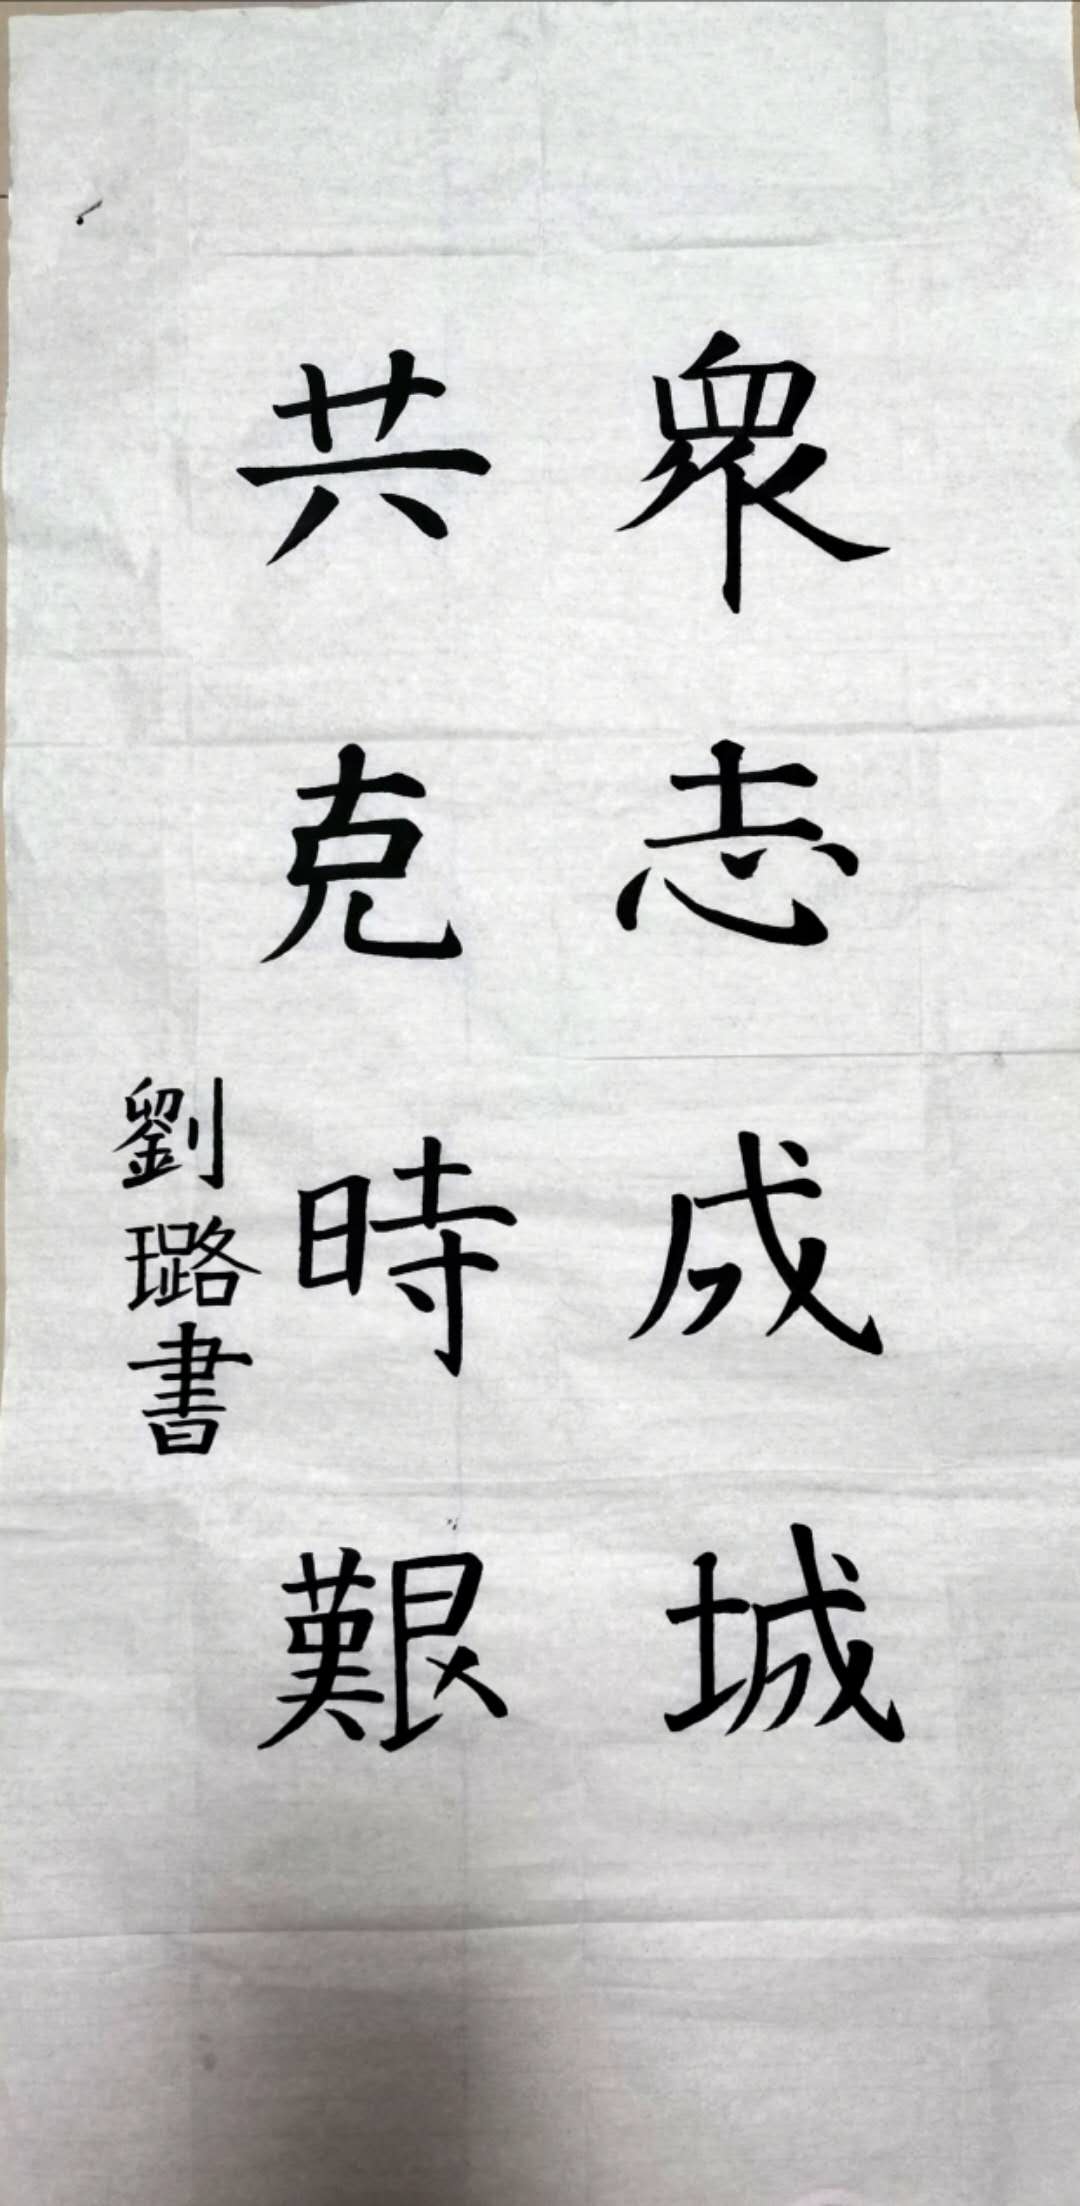 眾志成城
共克時艱
劉璐書